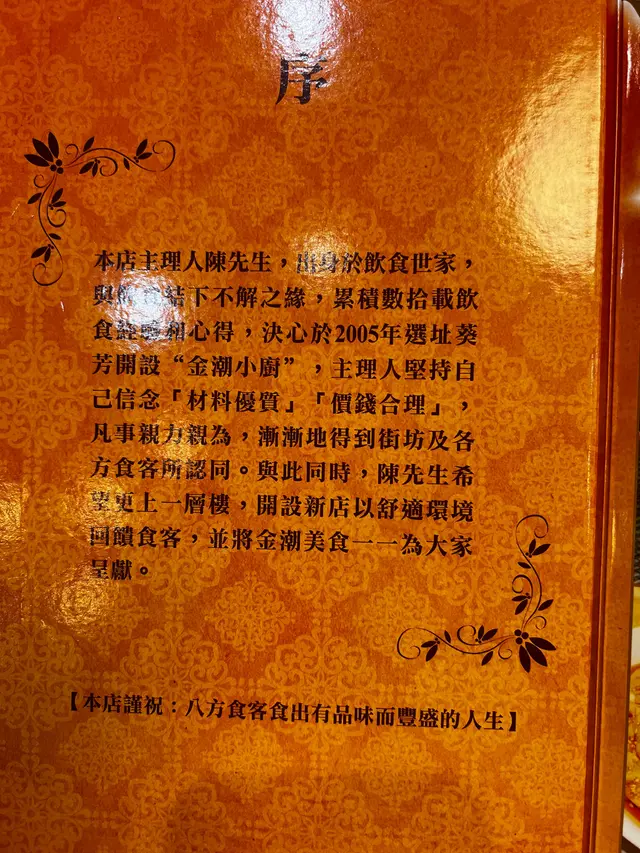 序
本店主理人陳先生，出身於飲食世家，
與飲食結下不解之緣，累積數拾載飲
食經驗和心得，決心於2005年選址葵
芳開設“金潮小廚”，主理人堅持自
己信念「材料優質」「價錢合理」，
凡事親力親為，漸漸地得到街坊及各
方食客所認同。與此同時，陳先生希
望更上一層樓，開設新店以舒適環境
回饋食客，並將金潮美食一一為大家
呈獻。
【本店謹祝：八方食客食出有品味而豐盛的人生】